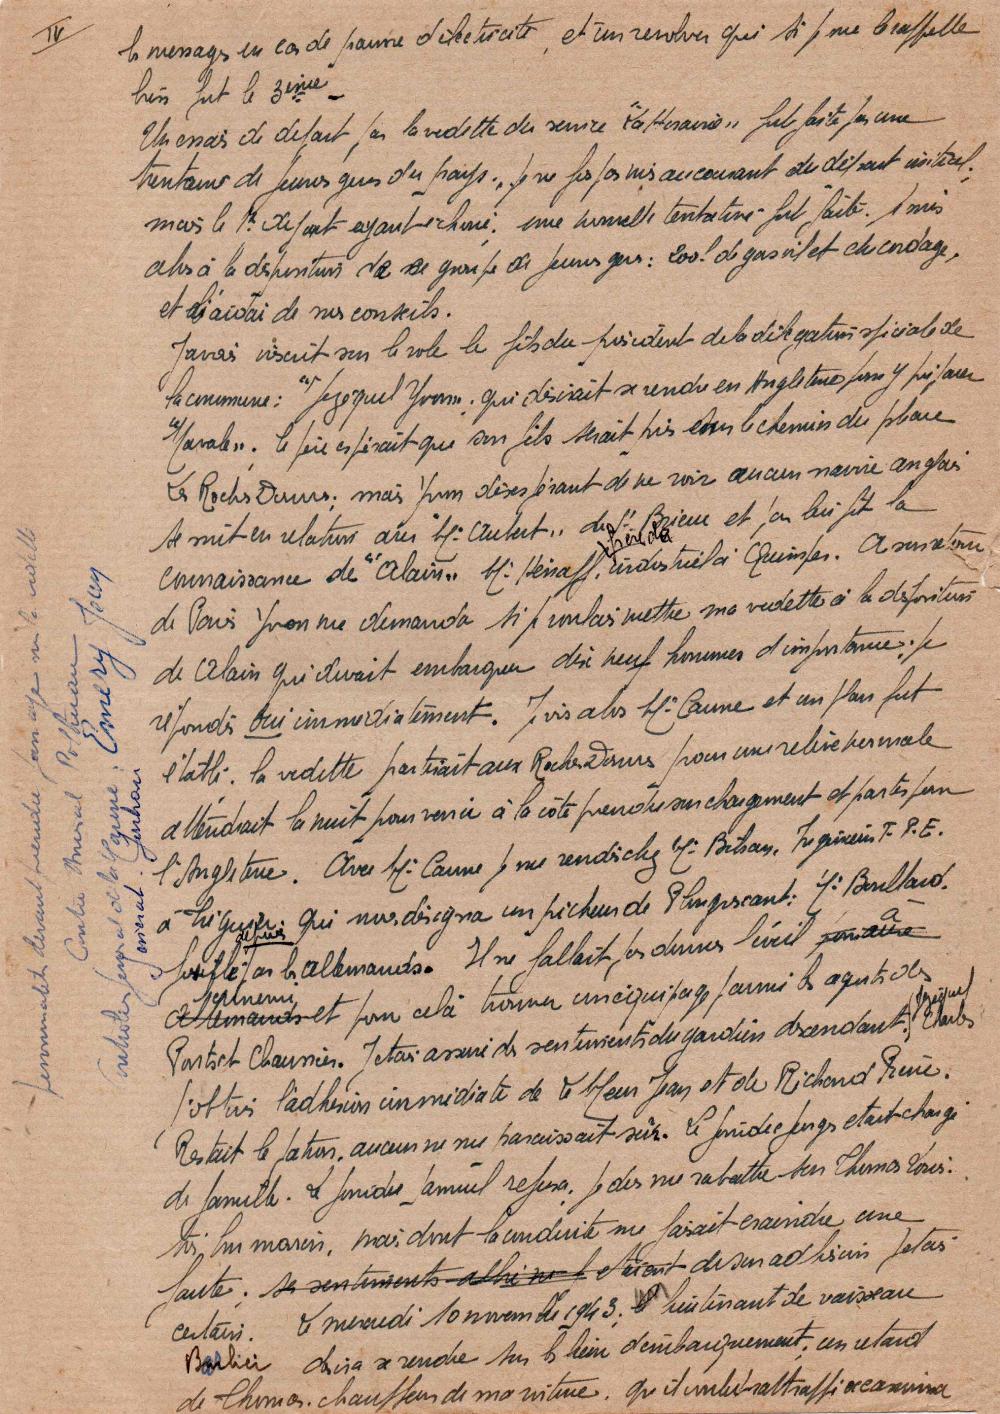 IV
les messages en cas de panne d'électricité, et un revolver qui si je me le rappelle
bien fut le 3ème -
Un essai de départ, par la vedette du service "La Horaine" fut faite par une
trentaine de jeunes gens du pays. je ne fus pas mis au courant du départ initial,
mais le 1er départ ayant échoué, une nouvelle tentative fut faite. Je mis
alors à la disposition de ce groupe de jeunes gens : 200l de gasoil et du cordage,
et l'aidai de mes conseils.
J'avais inscrit sur le role le fils du président de la délégation spéciale de
la commune : "Jézéquel Yvon", qui désirait se rendre en Angleterre pour y préparer
"Navale". Le père espérait que son fils serait pris sur le chemin du phare
Les Roches Douvres ; mais Yvon désespérant de ne voir aucun navire anglais
se mit en relation avec "Mr Aubert" de St Brieuc et par lui fit la
connaissance de "Alain" Mr Hénaff, industriel à Quimper. A son retour
de Paris Yvon me demanda si je voulais mettre ma vedette à la disposition
de Alain qui devait embarquer dix neuf hommes d'importance ; je
répondis oui immédiatement. Je vis alors Mr Canne et un plan fut
établi. la vedette partirait aux Roches Douvres pour une relève normale
attendrait la nuit pour venir à la côte prendre son chargement et partir pour
l'Angleterre. Avec Mr Canne je me rendis chez Mr Bihan, Ingénieur T.P.E.
à Tréguier. qui nous désigna un pêcheur de Plougrescant : Mr Boullard.
depuis
fusillé par les Allemands. Il ne fallait pas donner l'éveil à
l'ennemi
allemands et pour celà trouver un équipage parmi les agents des
Ponts et Chaussées. J'étais assuré des sentiments du gardien descendant, (Jézéquel Charles)
j'obtins l'adhésion immédiate de Le Meur Jean et de Richard René.
Restait le patron, aucun ne me paraissait sûr. Le Jouedec Jorges était chargé
de famille. Le Jouidec Samuel refusa. je dus me rabattre sur Thomas Louis.
très bon marin, mais dont la conduite me faisait craindre une
faute ; ses sentiments étaient de son adhésion j'étais
certain. Le mercredi 10 novembre 1943, le lieutenant de vaisseau
Barbier désira se rendre sur le lieu d'embarquement, un retard
de Thomas. chauffeur de ma voiture. qu'il voulut rattraper occasionna
Personnalités devant prendre passage sur la vedette
Contre Amiral
Contrôleur général de la Marine : Emery Jacq